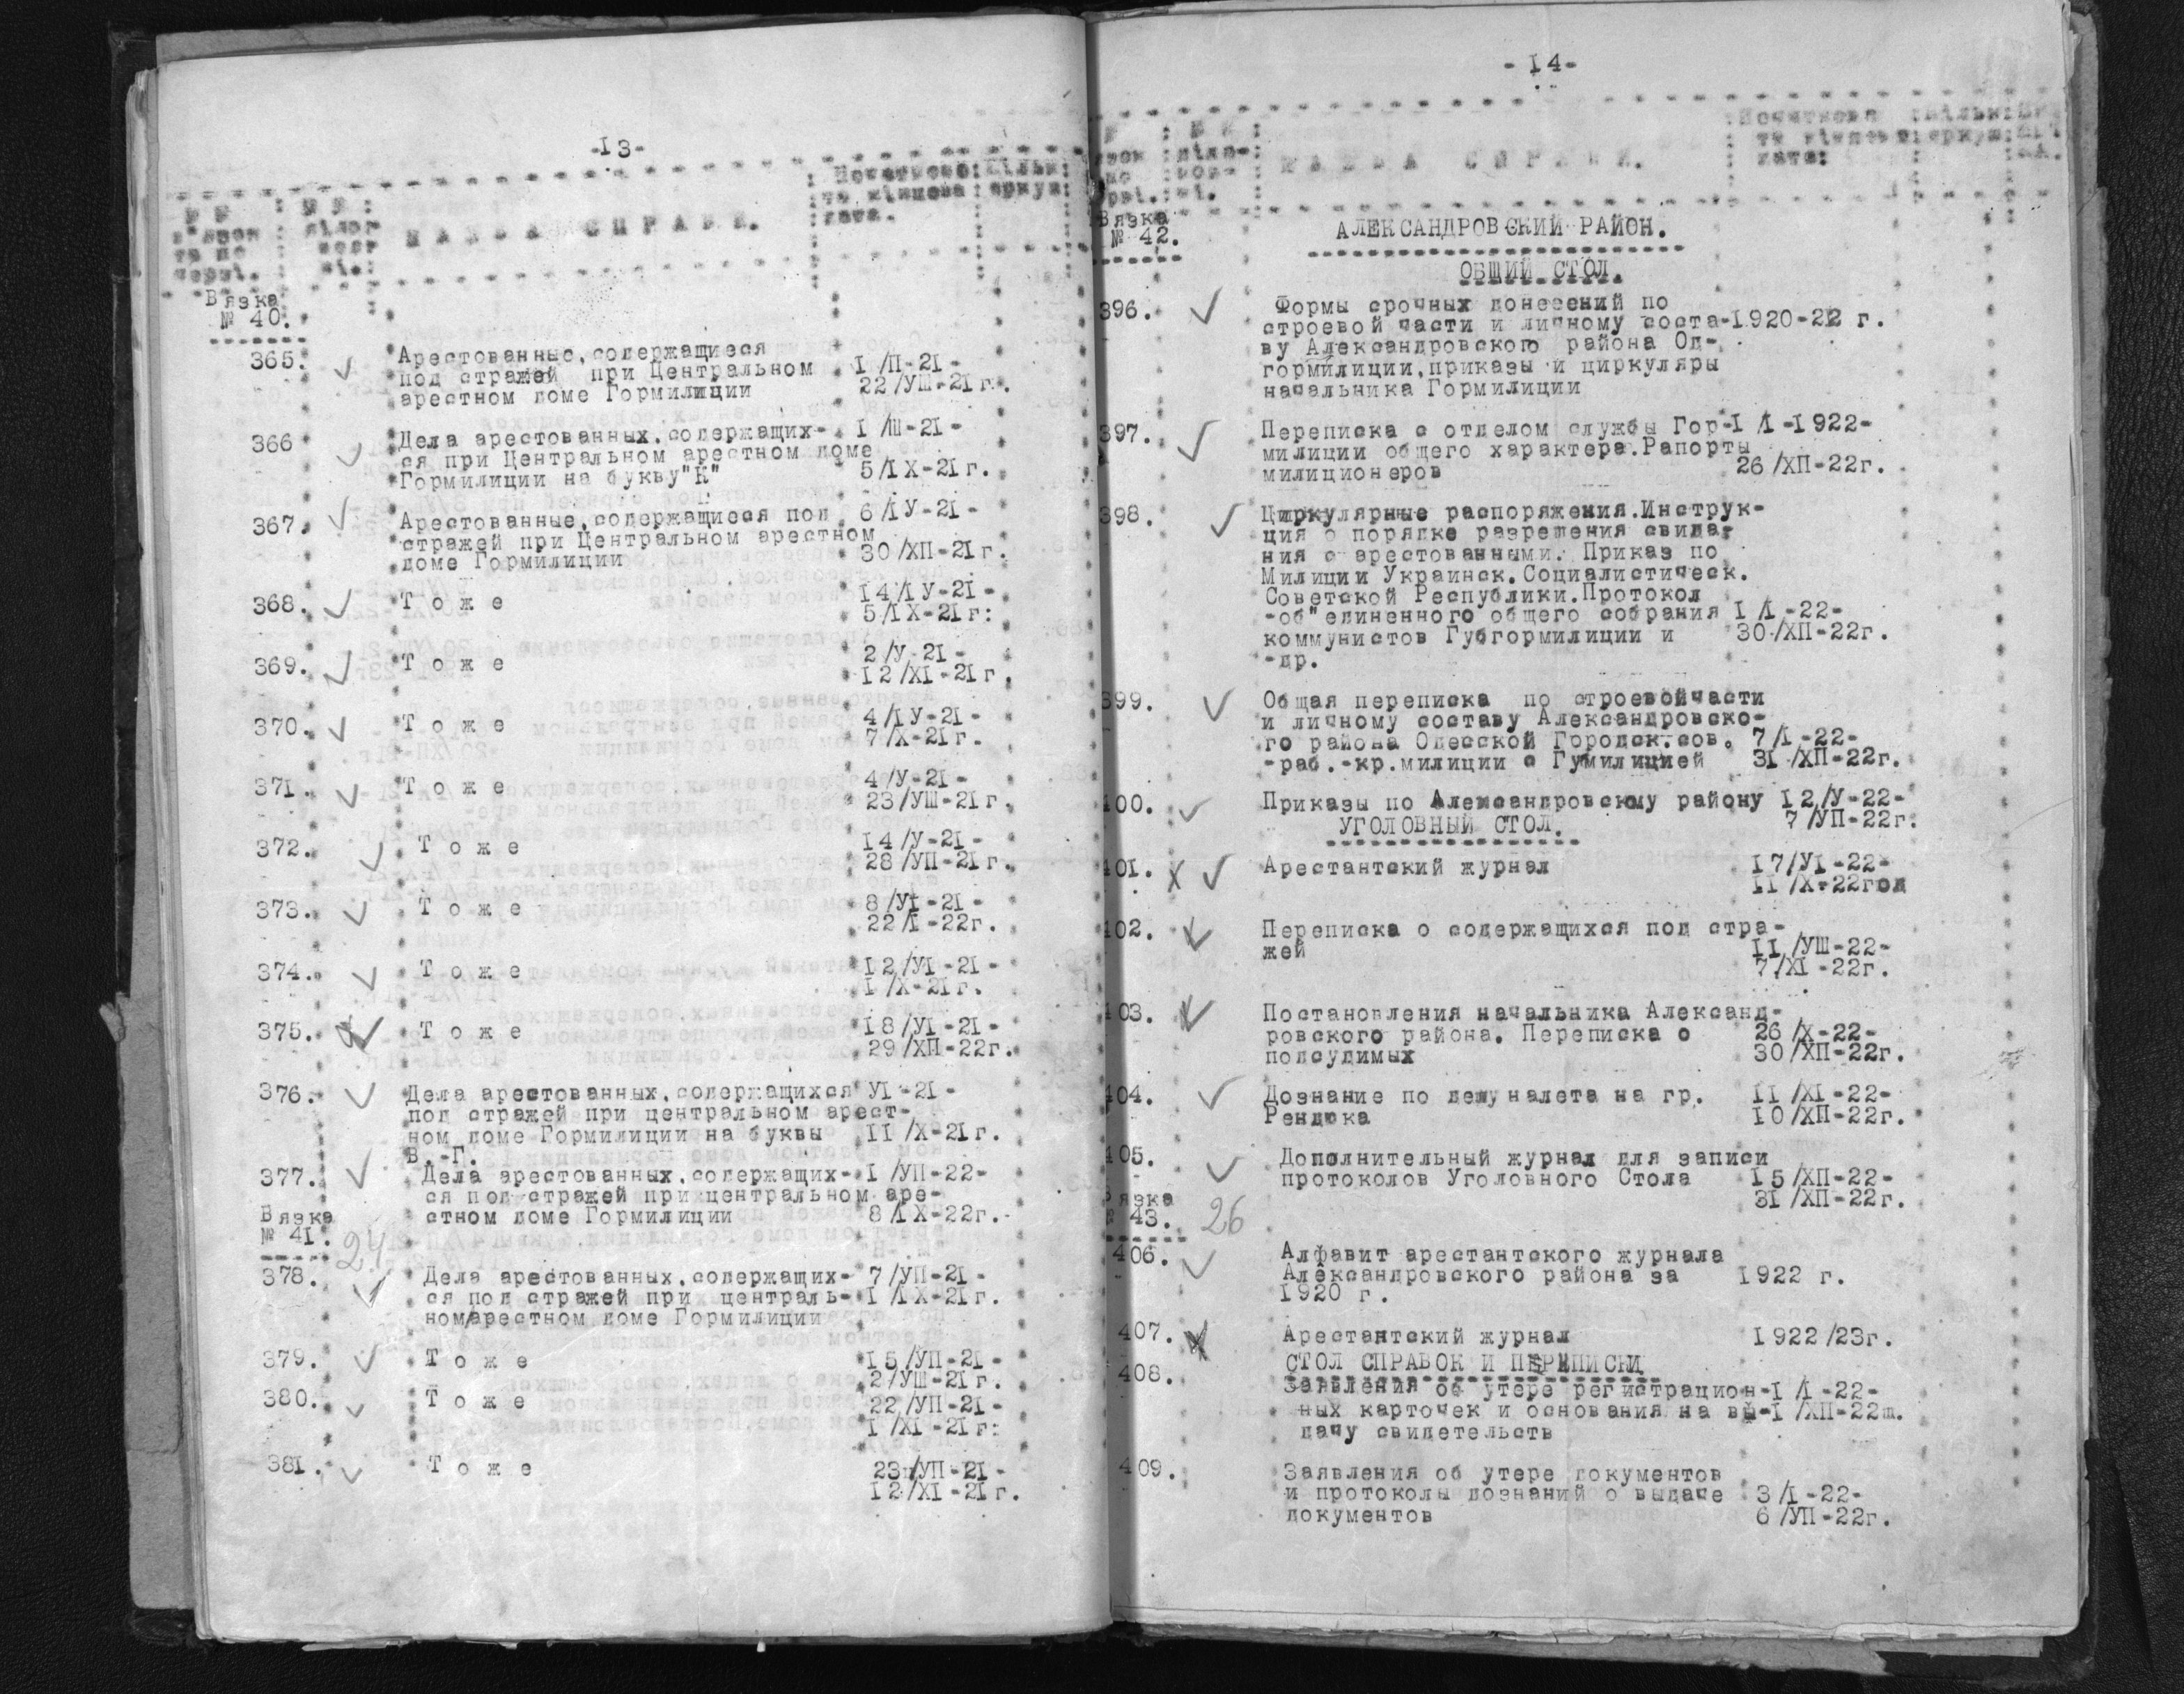 -13-
№ №
в'язок
та по
черзі.
№ №
НАЗВА СПРАВИ.
Початкова
та кінцева
дата.
Вязка
№ 40.
365. Арестованные,содержащиеся
под стражей при Центральном 1/П-21-
арестном доме Гормилиции 22/УШ-21г.
366 Дела арестованных,содержащих- 1/Ш-21-
ся при Центральном арестном доме
Гормилиции на букву"К" 5/1Х-21г.
367. Арестованные,содержащиеся под 6/1У-21-
стражей при Центральном арестном
доме Гормилиции 30/ХП-21г.
368. Тоже 14/1У-21-
5/1Х-21г:
369. Тоже 2/У-21-
12/Х1-21г.
370. Тоже 4/1У-21-
7/Х-21г.
371. Тоже 4/У-21-
23/УШ-21г.
372. Тоже 14/У-21-
28/УП-21г.
373. Тоже 8/У1-21-
22/1-22г.
374. Тоже 12/У1-21-
1/Х-21г.
375. Тоже 18/У1-21-
29/ХП-22г.
376. Дела арестованных,содержащихся У1-21-
под стражей при центральном арест-
ном доме Гормилиции на буквы 11/Х-21г.
В.-Г.
377. Дела арестованных,содержащих- 1/УП-22-
ся под стражей при центральном аре-
стном доме Гормилиции 8/1Х-22г.
Вязка
№ 41. 24
378. Дела арестованных,содержащих- 7/УП-21-
ся под стражей при централь- 1/1Х-21г.
ном/арестном доме Гормилиции
379. Тоже 15/УП-21-
2/УШ-21г.
380. Тоже 22/УП-21-
1/Х1-21г:
381. Тоже 23/УП-21-
12/Х1-21г.
-14-
НАЗВА СПРАВИ.
Початкова
та кінцева
дата:
Вязка
№ 42.
АЛЕКСАНДРОВСКИЙ РАЙОН.
ОБЩИЙ СТОЛ.
396. Формы срочных донесений по
строевой части и личному соста-1920-22 г.
ву Александровского района Од-
гормилиции,приказы и циркуляры
начальника Гормилиции
397. Переписка с отделом службы Гор-1/1-1922-
милиции общего характера.Рапорты
милиционеров 26/ХП-22г.
398. Циркулярные распоряжения.Инструк-
ция о порядке разрешения свида-
ния с арестованными. Приказ по
Милиции Украинск.Социалистическ.
Советской Республики.Протокол
-об"единенного общего собрания 1/1-22-
коммунистов Губгормилиции и 30/ХП-22г.
-др.
399. Общая переписка по строевойчасти
и личному составу Александровско-
го района Одесской Городск.сов. 7/1-22-
-раб.-кр.милиции с Гумилицией 31/ХП-22г.
400. Приказы по Александровскому району 12/У-22-
7/УП-22г.
УГОЛОВНЫЙ СТОЛ.
401. Арестантский журнал 17/У1-22-
11/Х-22год
402. Переписка о содержащихся под стра-
жей 11/УШ-22-
7/Х1-22г.
403. Постановления начальника Александ-
ровского района. Переписка о 26/Х-22-
подсудимых 30/ХП-22г.
404. Дознание по делу налета на гр. 11/Х1-22-
Рендюка 10/ХП-22г.
405. Дополнительный журнал для записи
протоколов Уголовного Стола 15/ХП-22-
31/ХП-22г.
Вязка
№ 43. 26
406. Алфавит арестантского журнала
Александровского района за 1922 г.
1920 г.
407. Арестантский журнал 1922/23г.
СТОЛ СПРАВОК И ПЕРЕПИСКИ
408. Заявления об утере регистрацион-1/1-22-
ных карточек и основания на вы-1/ХП-22г.
дачу свидетельств
409. Заявления об утере документов
и протоколы дознаний о выдаче 3/1-22-
документов 6/УП-22г.